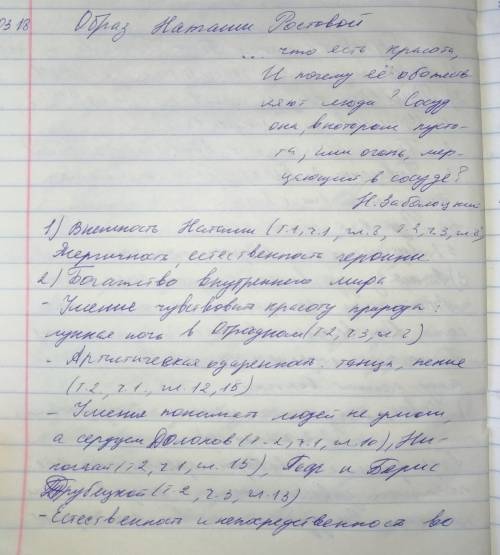 03.18 Образ Наташи Ростовой
... что есть красота,
И почему её обожеств
ляют люди? Сосуд
она, в котором пусто-
та, или огонь, мер-
цающий в сосуде?
Н. Заболоцкий
1) Внешность Наташи (т.1, ч.1, гл.8, т.2, ч.3,
Энергичность, естественность героини
2) Богатство внутреннего мира
- Умение чувствовать красоту природы:
лунная ночь в Отрадном (т.2, ч.3, гл.2)
- Артистическая одаренность: танцы, пение
(т.2, ч.1., гл.12, 15)
- Умения понимать людей не умом,
а сердцем Долохов (т.2, ч.1, гл.10), Ни-
(т2, ч.1, гл.15), и Борис
Друбецкой (т.2, ч.3, гл.13)
- Естественность и непосредственность во